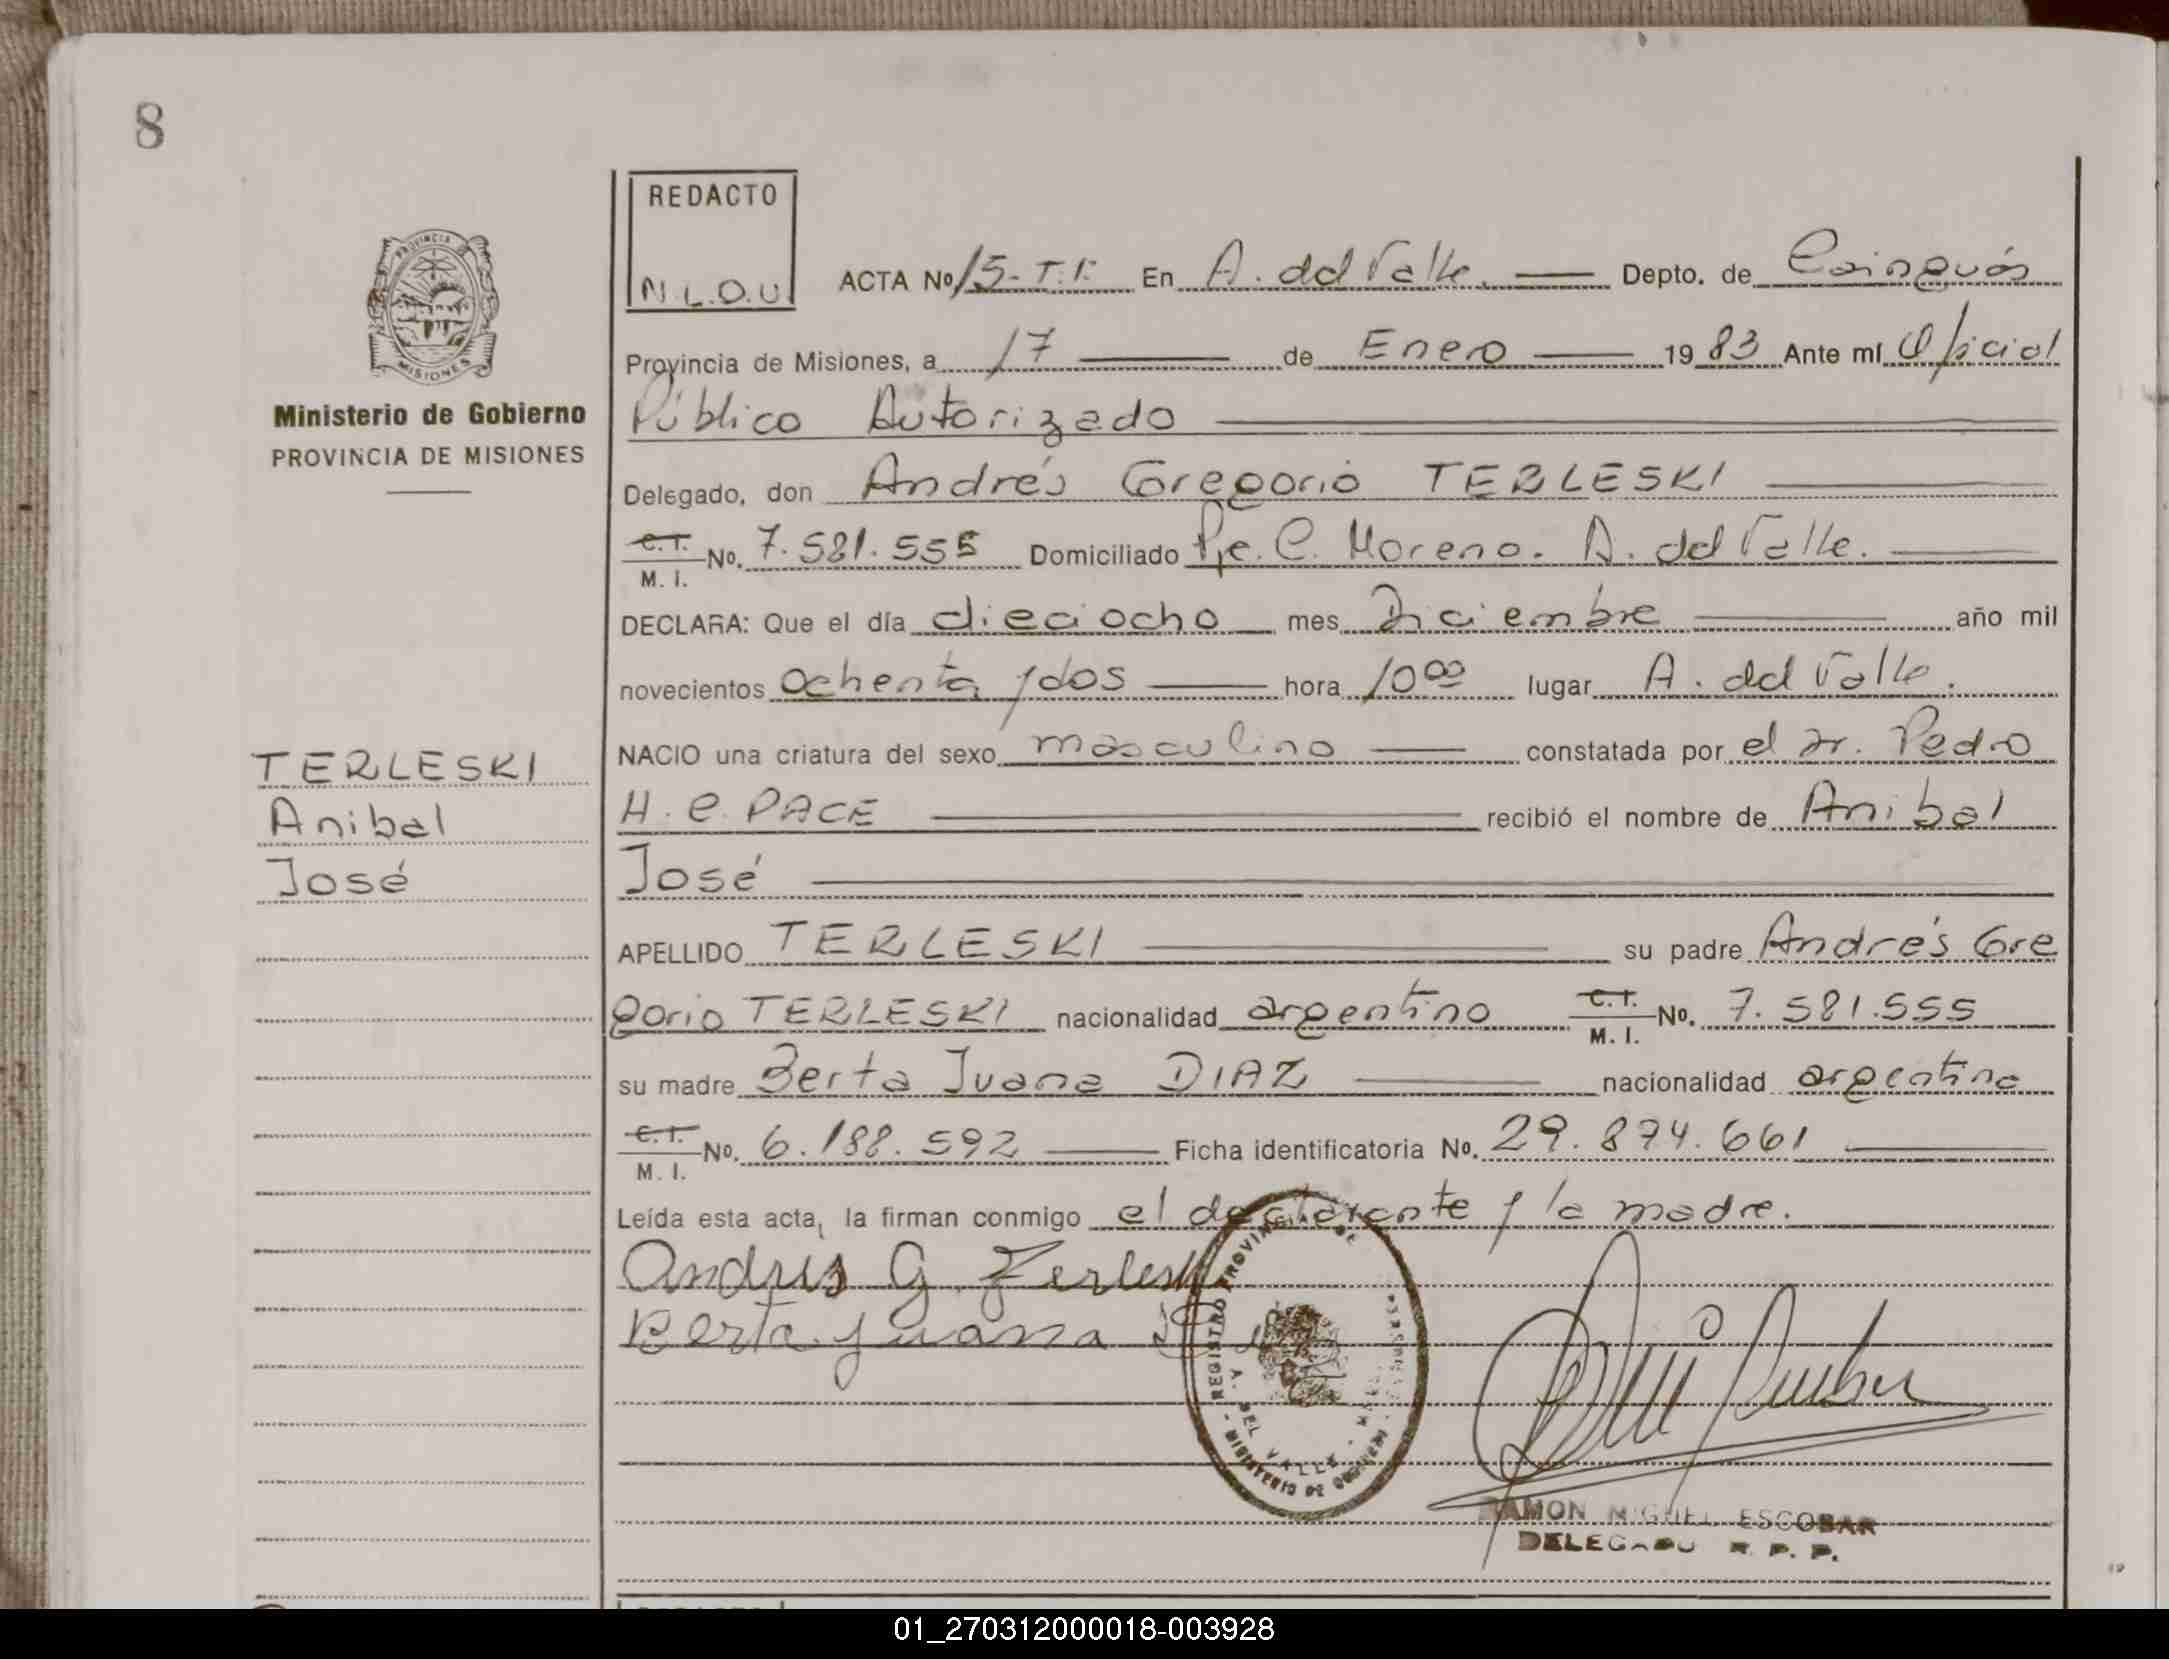 8
REDACTO
N.L.O.U.
ACTA No 15-T.I. En A. del Valle. Depto. de Cainguás
Provincia de Misiones, a 17 de Enero 1983 Ante mí Oficial
Público Autorizado
Delegado, don Andrés Gregorio TERLESKI
C.I. M. I. No. 7.581.555 Domiciliado Pje. C. Moreno. A. del Valle.
DECLARA: Que el día dieciocho mes Diciembre año mil
novecientos ochenta y dos hora 10 00 lugar A. del Valle.
NACIO una criatura del sexo masculino constatada por el Dr. Pedro
H. C. PACE recibió el nombre de Anibal
José
APELLIDO TERLESKI su padre Andrés Gre
gorio TERLESKI nacionalidad argentino C.I. M. I. No. 7.581.555
su madre Berta Juana DIAZ nacionalidad argentina
C.I. M. I. No. 6.188.592 Ficha identificatoria No. 29.874.661
Leída esta acta, la firman conmigo el declarante y la madre.
Andres G Terleski
Berta Juana
REGISTRO PROVINCIAL DE
A. DEL VALLE
MINISTERIO DE GOBIERNO
RAMON MIGUEL ESCOBAR
DELEGADO R. P. P.
PROVINCIA DE
MISIONES
Ministerio de Gobierno
PROVINCIA DE MISIONES
TERLESKI
Anibal
José
01_270312000018-003928